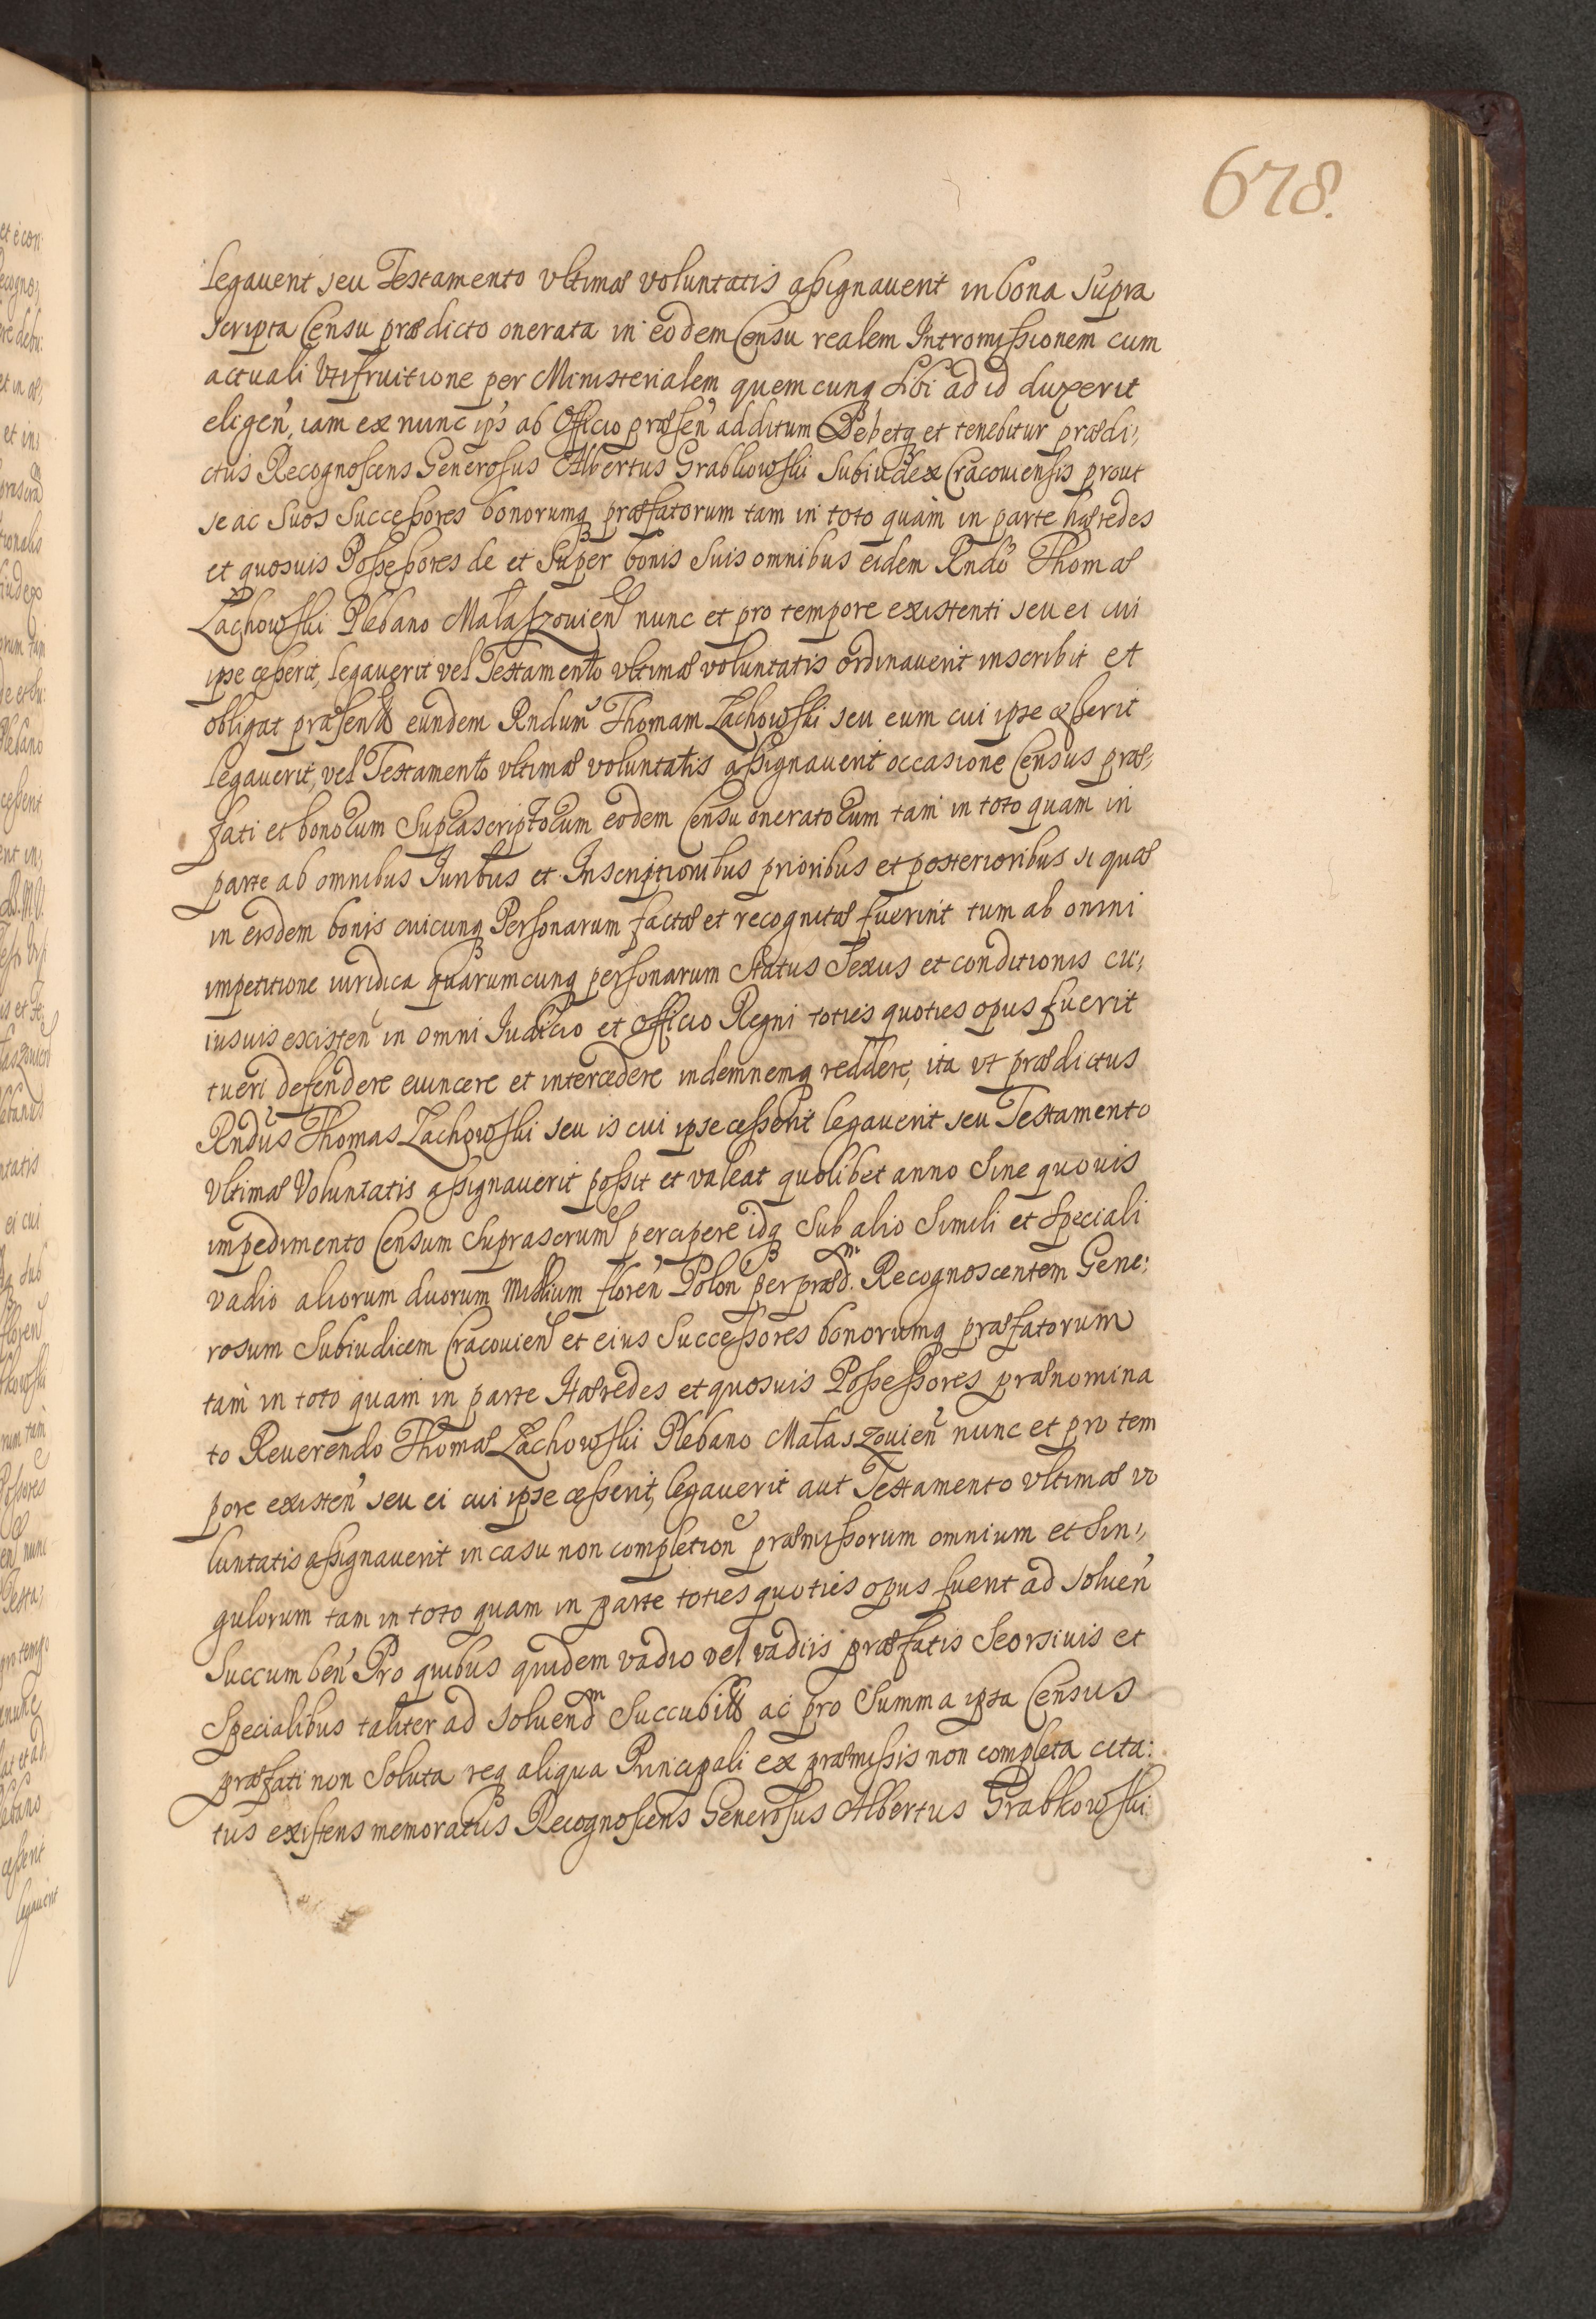 678.
legauerit seu Testamento vltimæ voluntatis assignauerit in bona Supra
scripta Censu prædicto onerata in eodem Censu realem Intromissionem cum
actuali Vtifruitione per Ministerialem quemcunq Sibi ad id duxerit
eligen, iam ex nunc ips ab Officio præsen additum Debetq et tenebitur prædi,
ctus Recognoscens Generosus Albertus Grabkowski Subiudex Cracouiensis prout
se ac suos Successores bonorumq præfatorum tam in toto quam in parte hæredes
et quosuis Possessores de et Super bonis Suis omnibus eidem Rndo Thomæ
Zachowski Plebano Małaszouien nunc et pro tempore existenti seu ei cui
ipse cesserit, legauerit vel Testamento vltimæ voluntatis ordinauerit inscribit et
obligat præsentibus eundem Rndum Thomam Zachowski seu eum cui ipse cesserit
legauerit, vel Testamento vltimæ voluntatis assignauerit occasione Census præ,
fati et bonorum Suprascriptorum eodem Censu oneratorum tam in toto quam in
parte ab omnibus Juribus et Inscriptionibus prioribus et posterioribus si quæ
in eisdem bonis cuicunq Personarum factæ et recognitæ fuerint tum ab omni
impetitione iuridica quarumcunq personarum Status Sexus et conditionis cu,
iusuis existen in omni Iudicio et Officio Regni toties quoties opus fuerit
tueri defendere euincere et intercedere indemnemq reddere, ita vt prædictus
Rndus Thomas Zachowski seu is cui ipse cesserit legauerit seu Testamento
Vltimæ Voluntatis assignauerit possit et valeat quolibet anno Sine quouis
impedimento Censum Suprascrum percipere idq Sub alio Simili et Speciali
vadio aliorum duorum Millium floren Polon per præd.m Recognoscentem Gene:
rosum Subiudicem Cracouien et eius Successores bonorumq præfatorum
tam in toto quam in parte Hæredes et quosuis Possessores prænomina
to Reuerendo Thomæ Zachowski Plebano Małaszouien nunc et pro tem
pore existen seu ei cui ipse cesserit, legauerit aut Testamento vltimæ vo
luntatis assignauerit in casu non completion præmissorum omnium et Sin,
gulorum tam in toto quam in parte toties quoties opus fuerit ad soluen
Succumben Pro quibus quidem vadio vel vadiis præfatis Seorsiuis et
Specialibus taliter ad soluendm Succubitis ac pro Summa ipsa Census
præfati non Soluta req aliqua Principali ex præmissis non completa cita:
tus existens memoratus Recognoscens Generosus Albertus Grabkowski